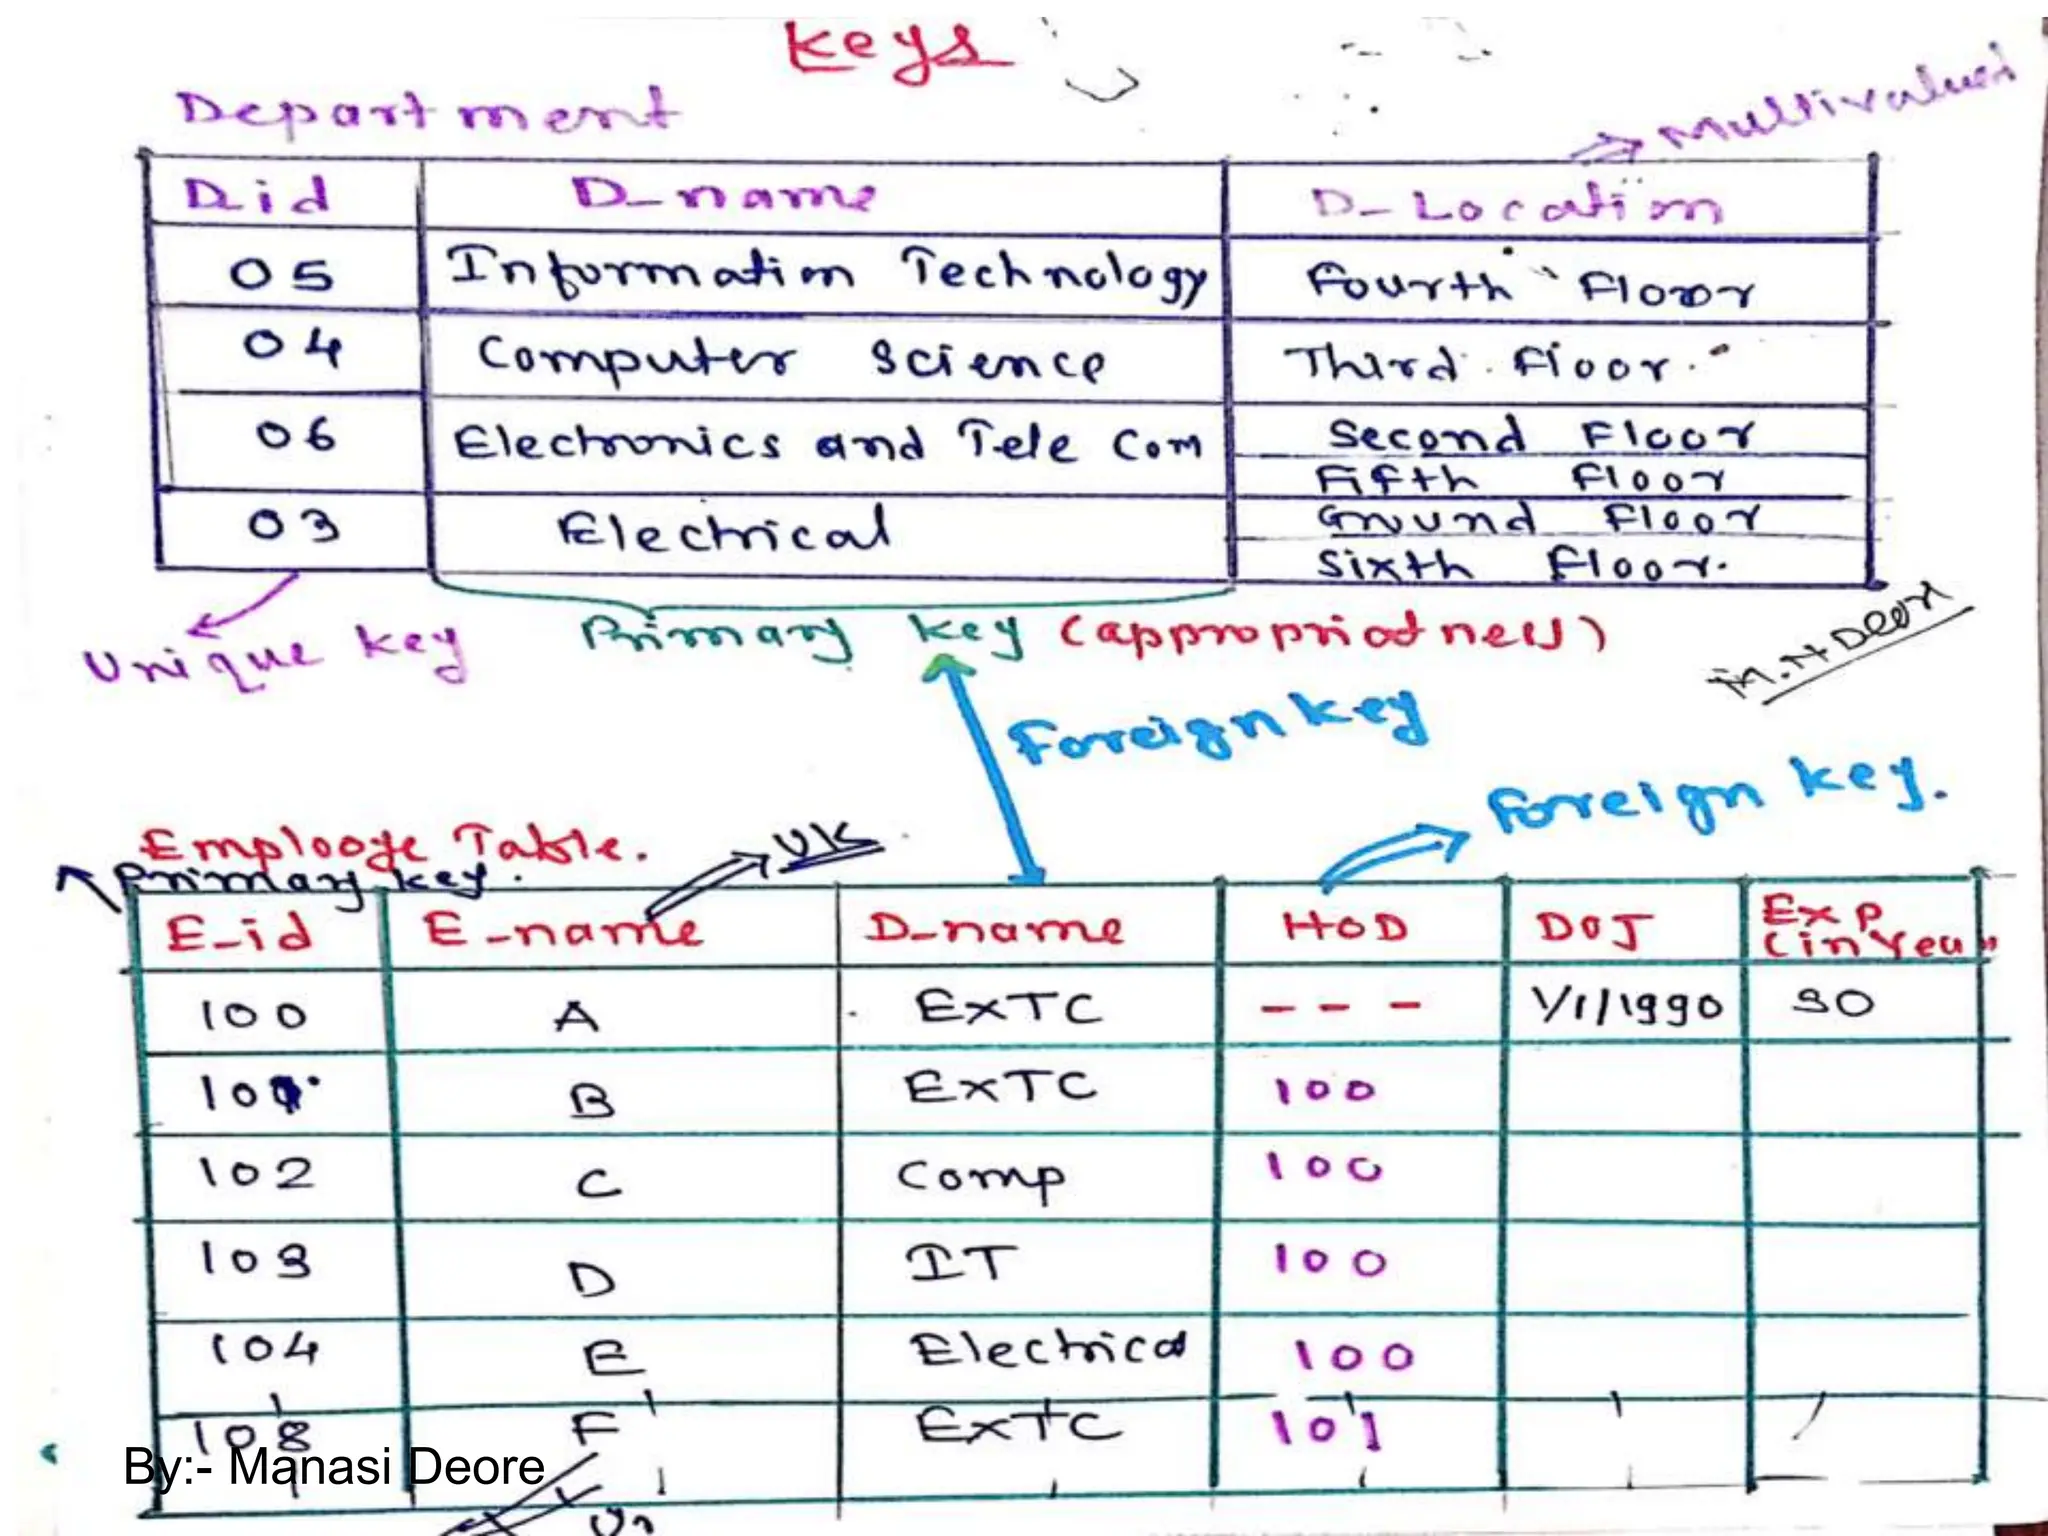 Keys
Department
⇒ Multivalued
D_id D_name D_Location
05 Information Technology Fourth Floor
04 Computer Science Third Floor.
06 Electronics and Tele Com Second Floor
Fifth Floor
03 Electrical Ground Floor
Sixth Floor.
Unique key Primary key (appropriatness)
M.N Deore
Foreign key
Foreign key.
Employe Table. UK
Primary key.
E_id E_name D_name HOD DOJ Exp (in Year
100 A EXTC --- 1/1/1990 30
101 B EXTC 100
102 C Comp 100
103 D IT 100
104 E Electrical 100
108 F EXTC 101
By:- Manasi Deore